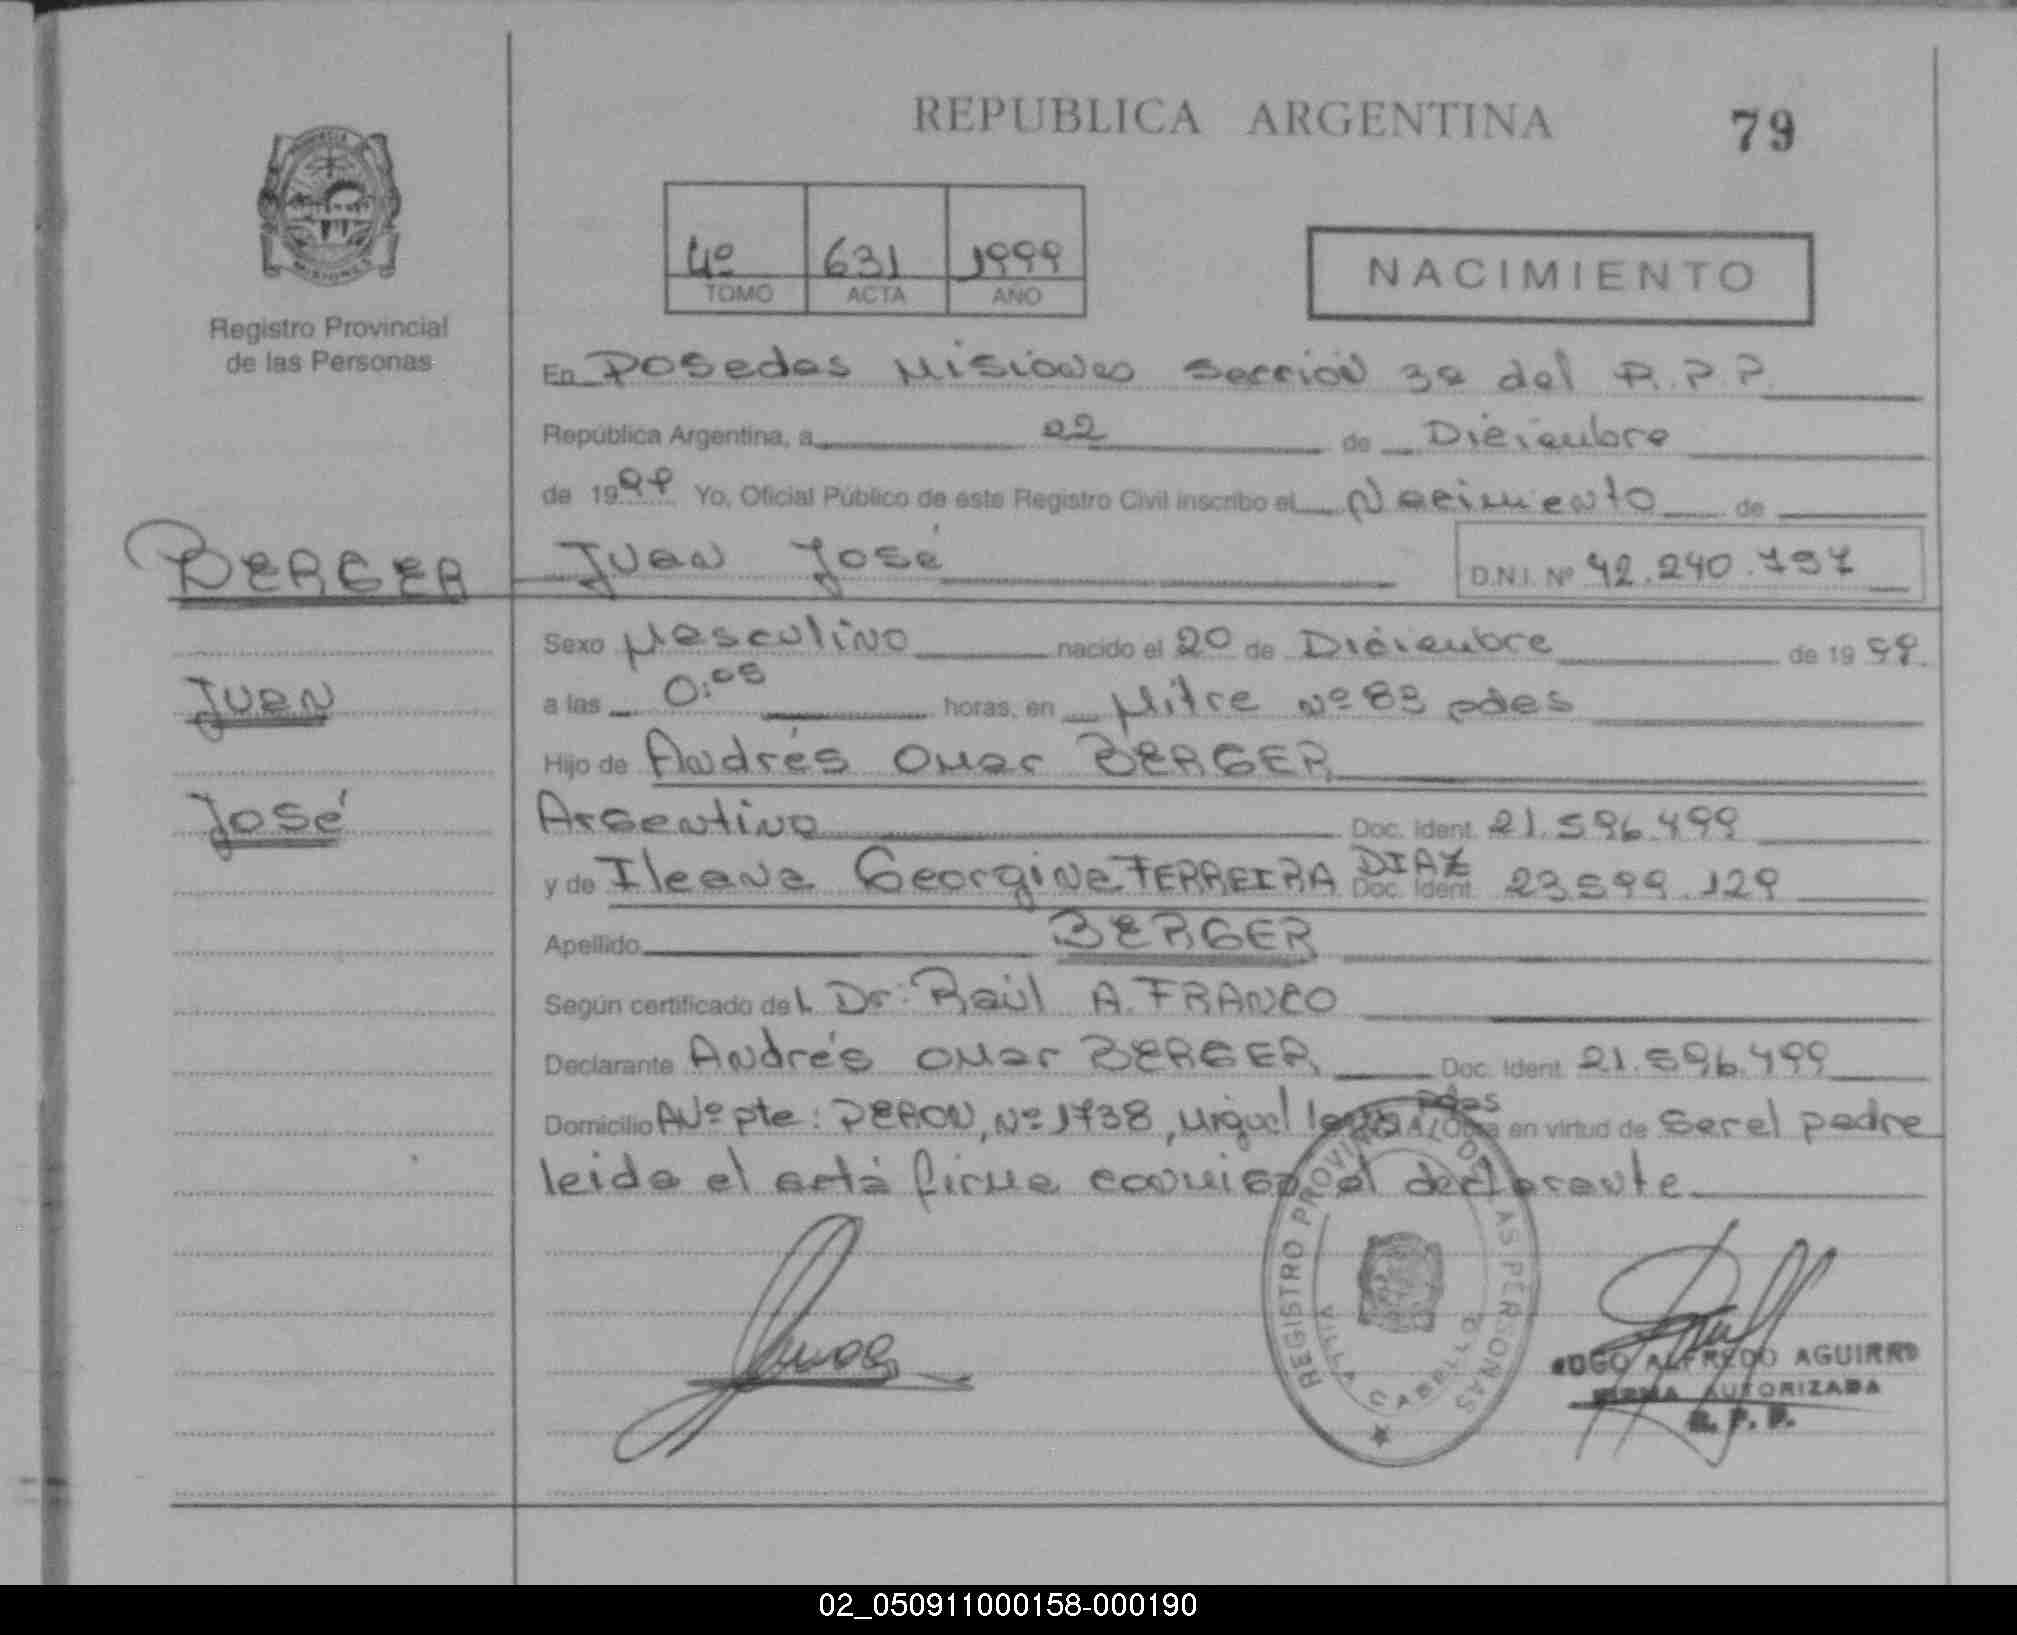 REPUBLICA ARGENTINA
79
PROVINCIA
MISIONES
Registro Provincial
de las Personas
4º 631 1999
TOMO ACTA AÑO
NACIMIENTO
En Posadas Misiones Sección 3a del R.P.P.
República Argentina, a 22 de Diciembre
de 1999 Yo, Oficial Público de este Registro Civil inscribo el Nacimiento de
BERGER Juan José D.N.I. Nº 42.240.797
Sexo Masculino nacido el 20 de Diciembre de 1999.
Juan
a las 0:05 horas, en Mitre Nº 83 pdas
Hijo de Andrés Omar BERGER
José
Argentino Doc. Ident. 21.596.499
y de Ileana Georgina FERREIRA DIAZ Doc. Ident. 23.599.129
Apellido BERGER
Según certificado del Dr: Raúl A. FRANCO
Declarante Andrés Omar BERGER Doc. Ident. 21.596.499
Domicilio AVº pte: PERON, Nº 1738, Miguel pdas en virtud de ser el padre
leida el acta firma conmigo el declarante
REGISTRO PROVINCIAL DE LAS PERSONAS
VILLA CABELLO
ALFREDO AGUIRRE
FIRMA AUTORIZADA
R. P. P.
02_050911000158-000190